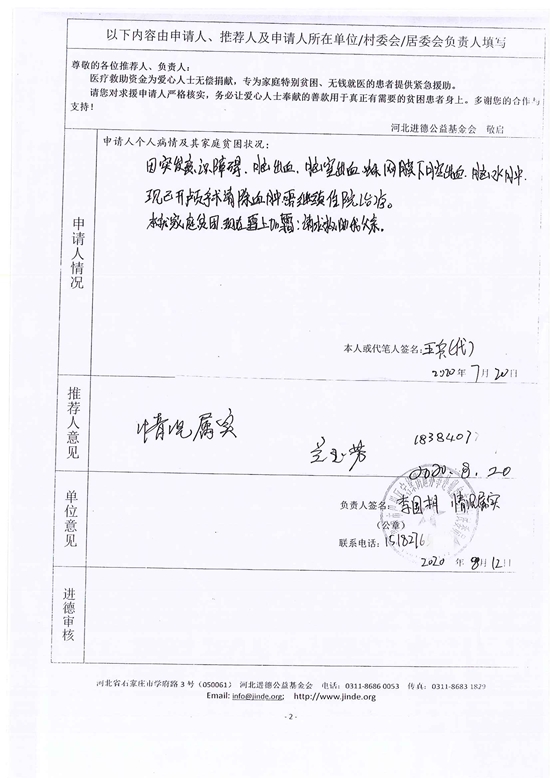 以下内容由申请人、推荐人及申请人所在单位/村委会/居委会负责人填写
尊敬的各位推荐人、负责人:
医疗救助资金为爱心人士无偿捐献，专为家庭特别贫困、无钱就医的患者提供紧急援助。
请您对求援申请人严格核实，务必让爱心人士奉献的善款用于真正有需要的贫困患者身上。多谢您的合作与
支持!
河北进德公益基金会 敬启
申请人情况
申请人个人病情及其家庭贫困状况:
因突发意识障碍、脑出血、脑室出血、蛛网膜下腔出血、脑水肿
现已开颅手术清除血肿需继续住院治疗。
本就家庭贫困现在雪上加霜:请求救助我父亲。
本人或代笔人签名:王兵(代)
2020年7月20日
推荐人意见
情况属实
兰玉芳
1838407
2020.8.20
单位意见
负责人签名: 李国相 情况属实
(公章)
联系电话: 1518276
2020年8月12日
进德审核
河北省石家庄市学府路3号（050061） 河北进德公益基金会 电话: 0311-8686 0053 传真: 0311-8683 1829
Email: info@jinde.org; http://www.jinde.org
- 2 -